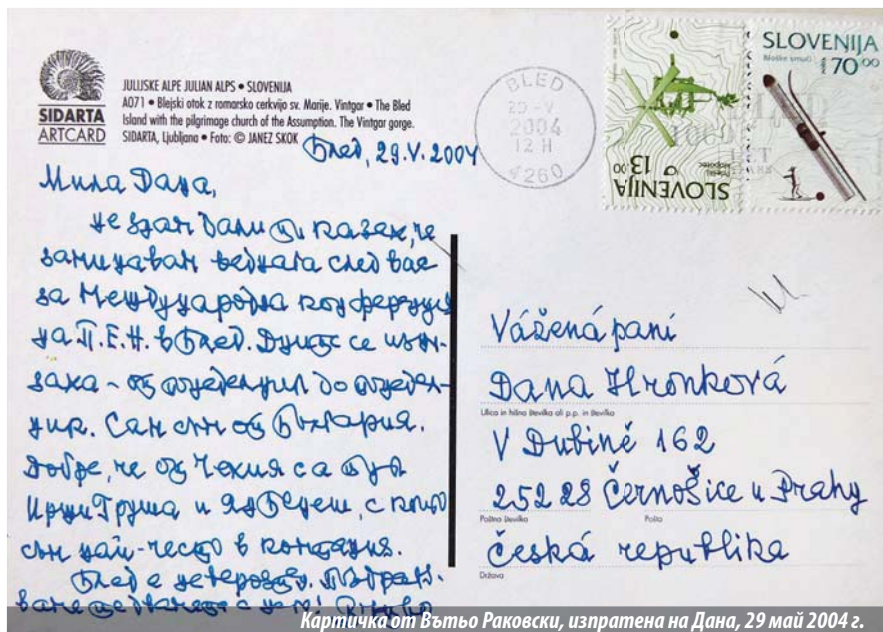 SIDARTA
ARTCARD
JULIJSKE ALPE JULIAN ALPS • SLOVENIJA
A071 • Blejski otok z romarsko cerkvijo sv. Marije. Vintgar • The Bled
Island with the pilgrimage church of the Assumption. The Vintgar gorge.
SIDARTA, Ljubljana • Foto: © JANEZ SKOK
BLED
29-V
2004
12 H
4260
SLOVENIJA
13.00
SLOVENIJA
Bloške smuči
170.00
Блед, 29.V.2004
Мила Дана,
не зная дали ти казах, че
заминавам веднага след вас
за Международна конференция
на П.Е.Н. в Блед. Дните се
от понеделник до понедел-
ник. Сам съм от България.
Добре, че от Чехия са тук
Иржи Груша и с които
съм най-често в контакт.
Блед е
Vážená paní
Dana Hronková
Ulica in hišna številka ali p.p. in številka
V Dubině 162
25228 Černošice u Prahy
Poštna številka
Pošta
Česká republika
Država
Картичка от Вътьо Раковски, изпратена на Дана, 29 май 2004 г.